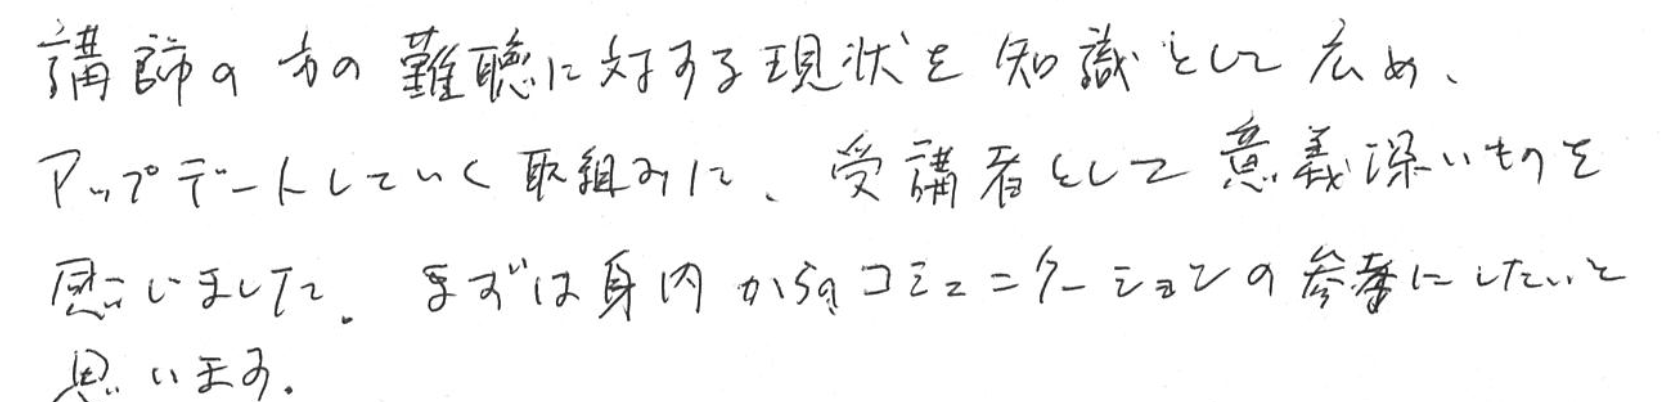 講師の方の難聴に対する現状を知識として広め、
アップデートしていく取組みに、受講者として意義深いものを
感じました。まずは身内からのコミュニケーションの参考にしたいと
思います。